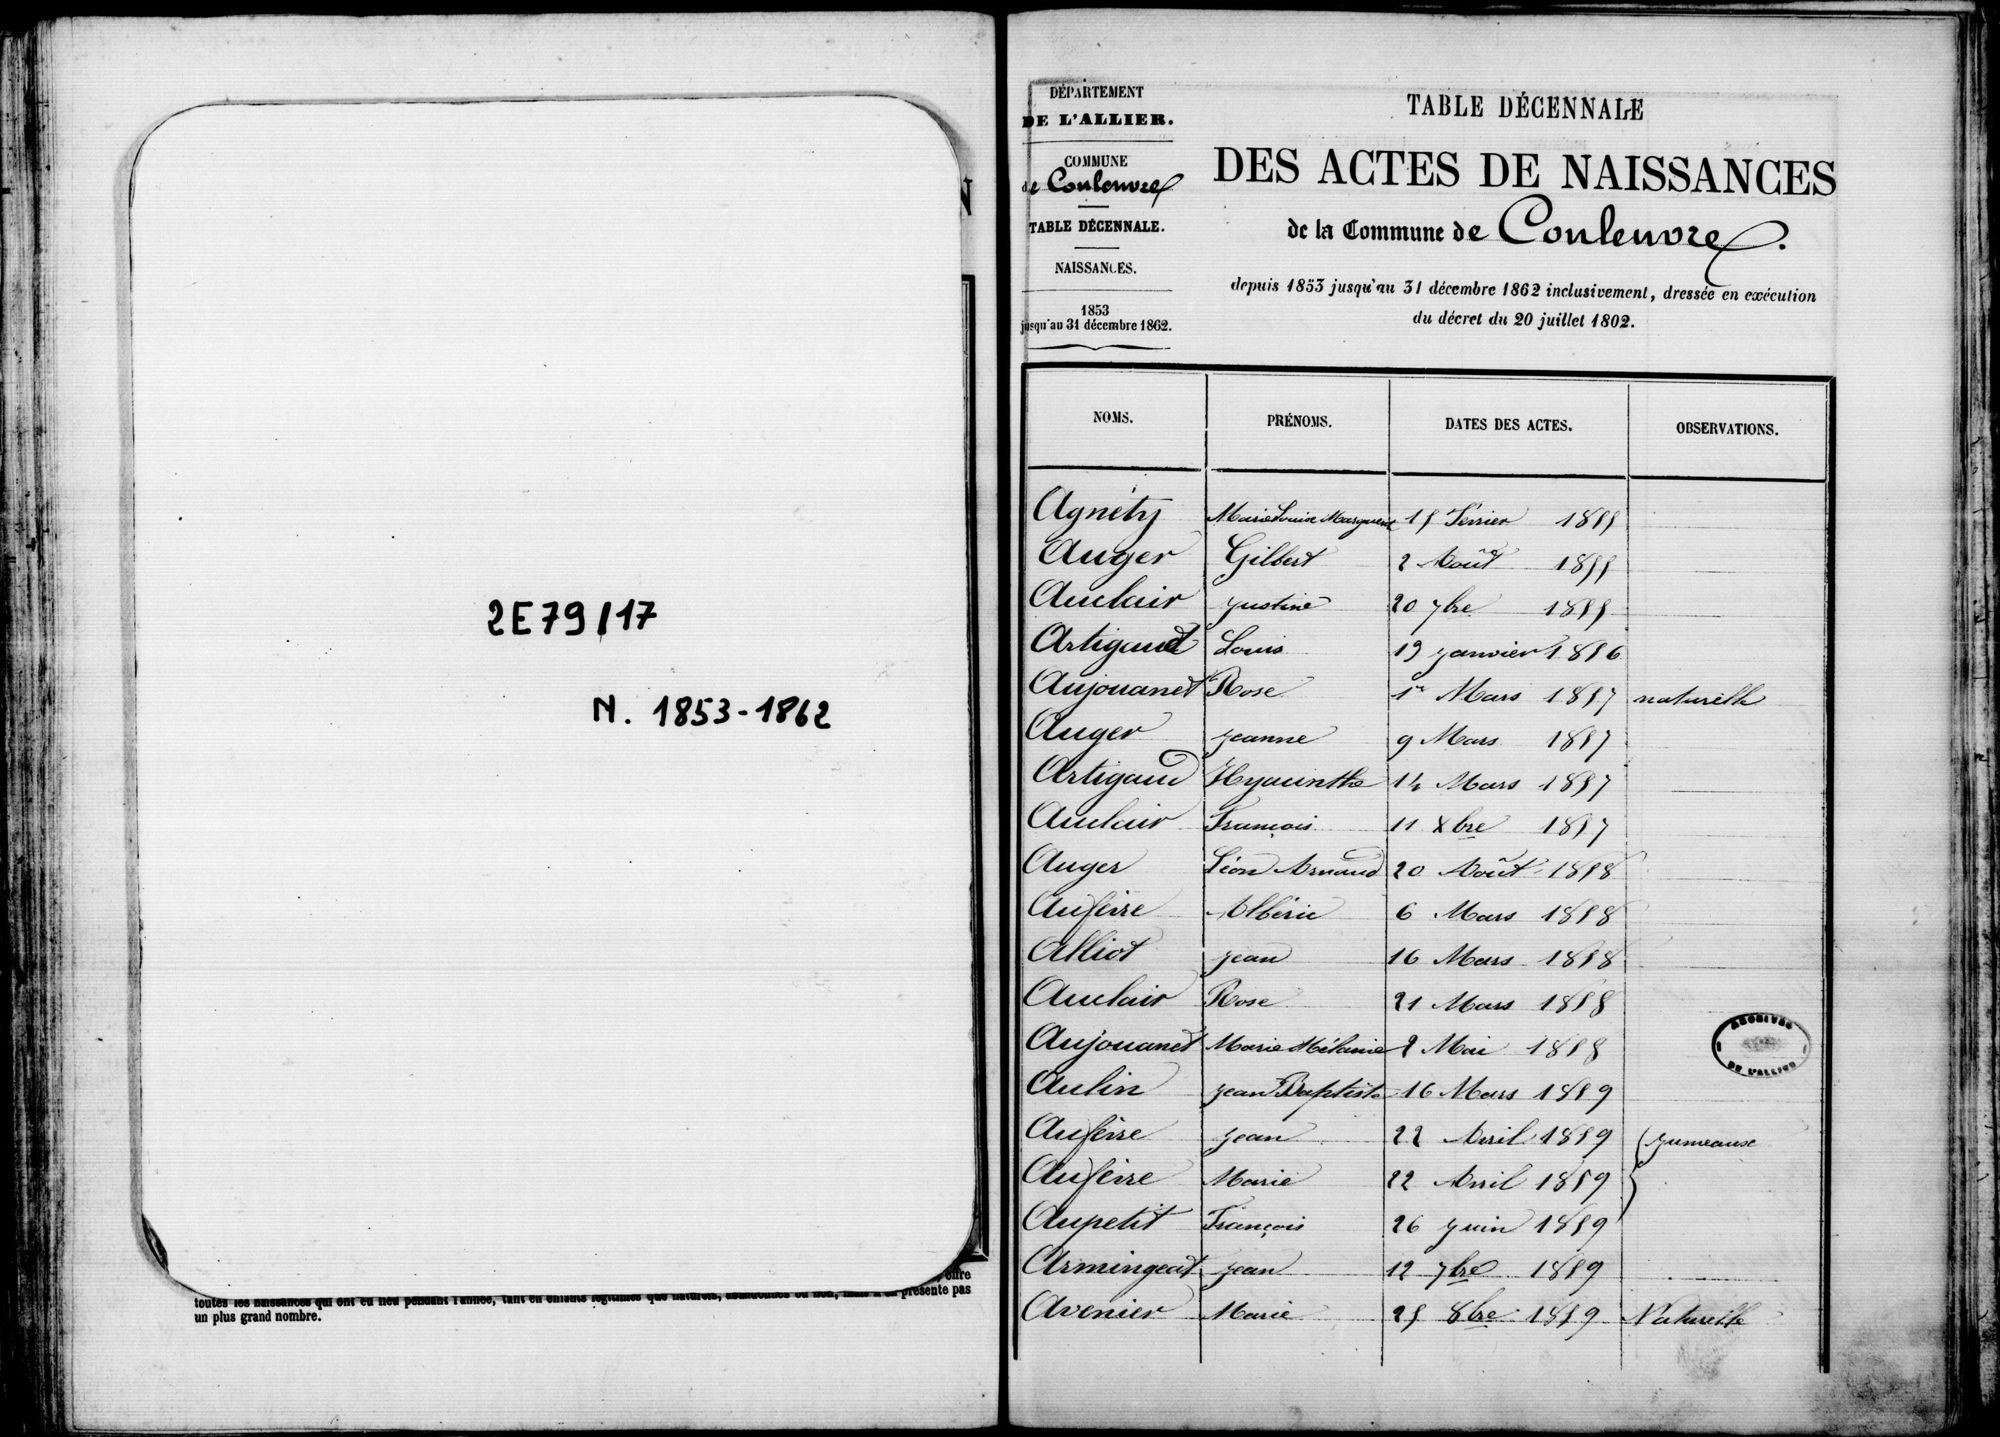 2E79/17
N. 1853-1862
toutes les naissances qui ont eu lieu pendant l'année, tant en enfants légitimes que naturels, abandonnés ou non, présente pas
un plus grand nombre.
DÉPARTEMENT
DE L'ALLIER.
COMMUNE
de Couleuvre
TABLE DÉCENNALE.
NAISSANCES.
1853
jusqu'au 31 décembre 1862.
TABLE DÉCENNALE
DES ACTES DE NAISSANCES
de la Commune de Couleuvre.
depuis 1853 jusqu'au 31 décembre 1862 inclusivement, dressée en exécution
du décret du 20 juillet 1802.
NOMS. PRÉNOMS. DATES DES ACTES. OBSERVATIONS.
Agnéty Marie Louise Marguerite 15 Février 1855
Auger Gilbert 2 Août 1855
Auclair Justine 20 7bre 1855
Artigaud Louis 19 Janvier 1856
Aujouanet Rose 1er Mars 1857 naturelle
Auger Jeanne 9 Mars 1857
Artigaud Hyacinthe 14 Mars 1857
Auclair François 11 Xbre 1857
Auger Léon Arnaud 20 Août 1858
Auferre Albéric 6 Mars 1858
Alliot Jean 16 Mars 1858
Auclair Rose 21 Mars 1858
Aujouanet Marie Mélanie 2 Mai 1858
Aulin Jean Baptiste 16 Mars 1859
Auferre Jean 22 Avril 1859 jumeaux
Auferre Marie 22 Avril 1859
Aupetit François 26 Juin 1859
Armingeat Jean 12 7bre 1859
Avenier Marie 25 8bre 1859 Naturelle
ARCHIVES
DE L'ALLIER